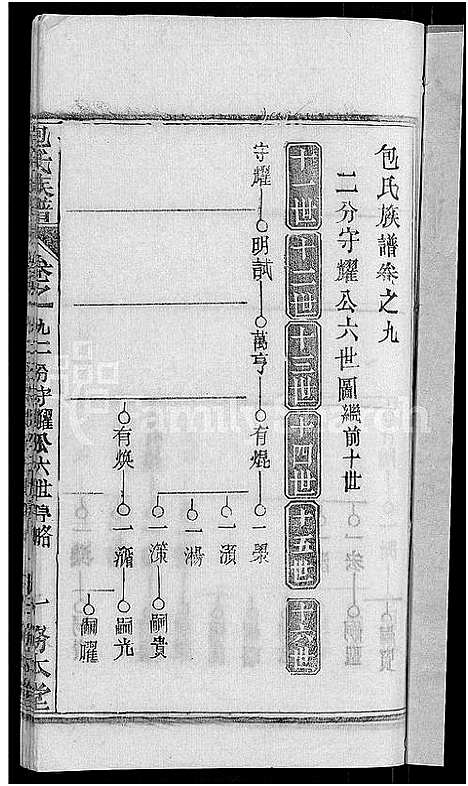 包氏族譜卷之九
二分守耀公六世圖繼前十世
十一世 十二世 十三世 十四世 十五世 十六世
守耀 明試 萬亨 有焜 一㵘
一濱
一湯
一滐 嗣貴
有煥 一瀡 嗣光
嗣耀
包氏族譜 卷之九 二分守耀公六世 一 務本堂
FamilySearch